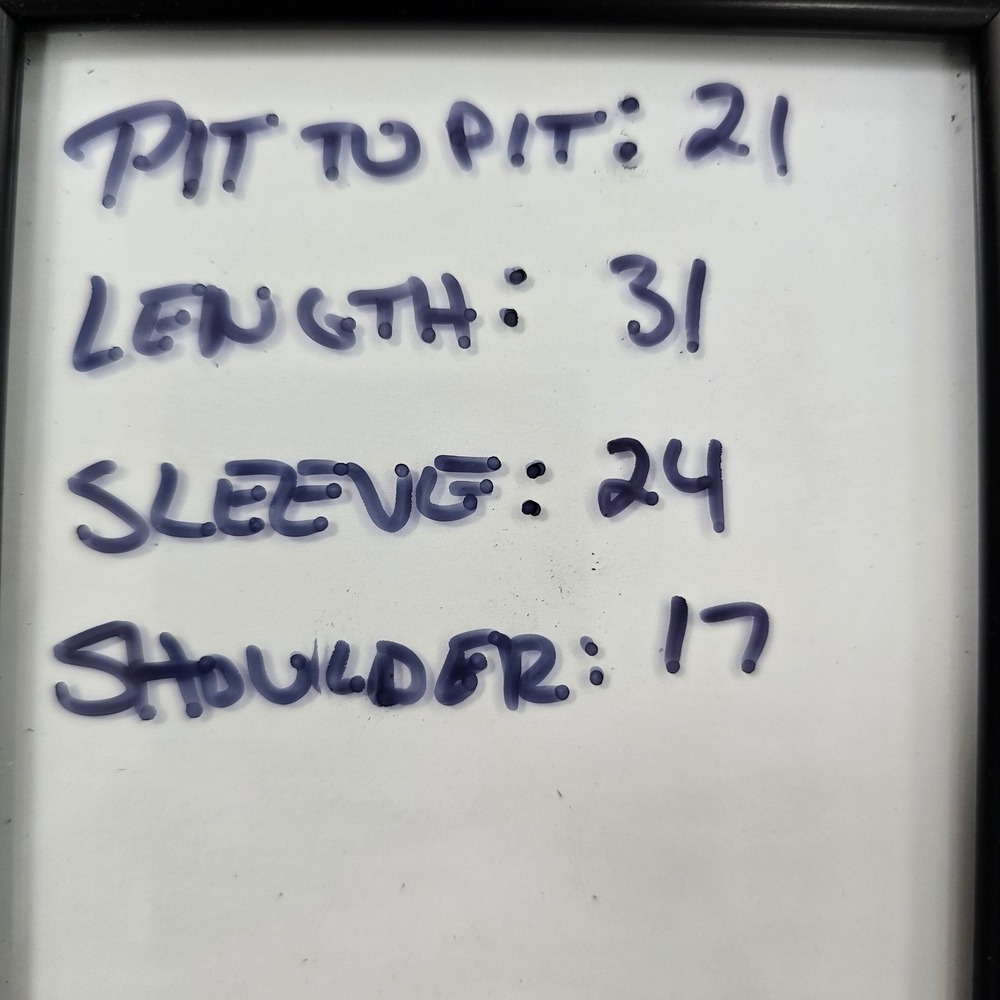 PIT TO PIT: 21
LENGTH: 31
SLEEVE: 24
SHOULDER: 17